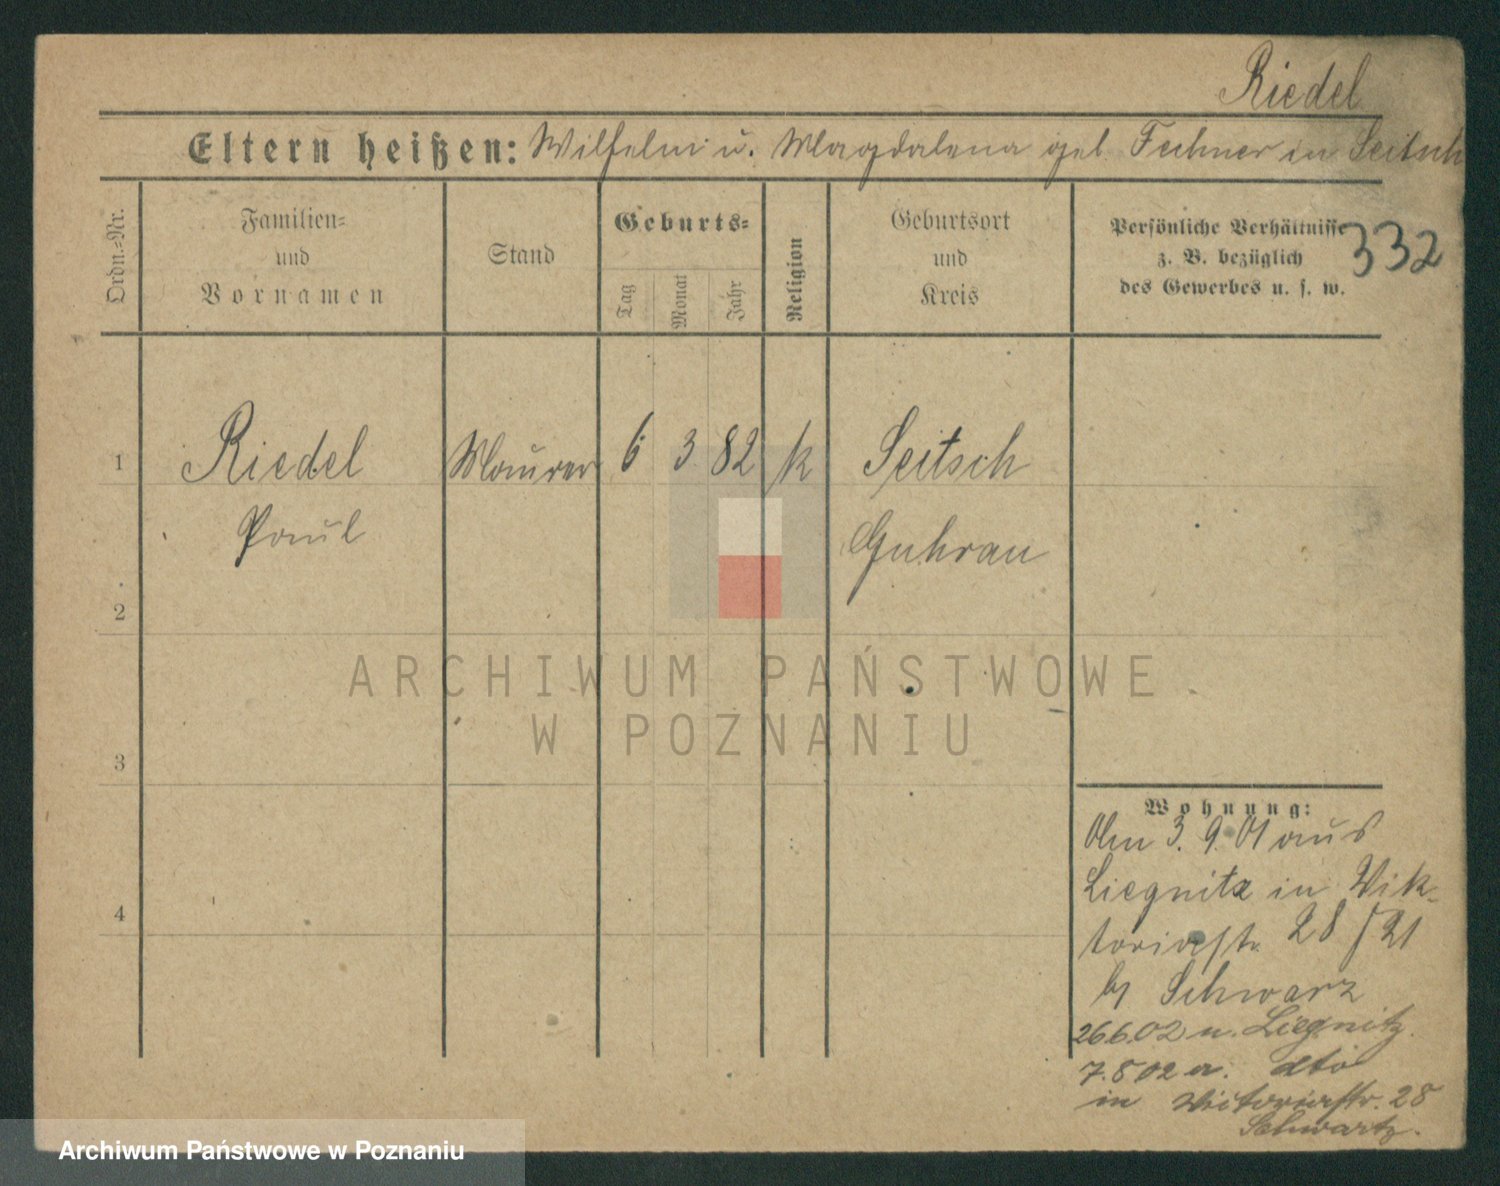 Riedel
Eltern heißen: Wilhelm u. Magdalena geb Fechner in Seitsch
Ordn.-Nr.
Familien-
und
Vornamen
Stand
Geburts-
Tag
Monat
Jahr
Religion
Geburtsort
und
Kreis
Persönliche Verhältnisse
z. B. bezüglich
des Gewerbes u. s. w.
332
1 Riedel Maurer 6 3 82 k Seitsch
Paul Guhrau
2
3
4
Wohnung:
Am 3. 9. 01 aus
Liegnitz in Vik-
toriastr. 28 / 21
bj Schwarz
26.6.02 n. Liegnitz.
7.8 02 a. dto
in Victoriastr. 28
Schwartz.
ARCHIWUM PAŃSTWOWE
W POZNANIU
Archiwum Państwowe w Poznaniu